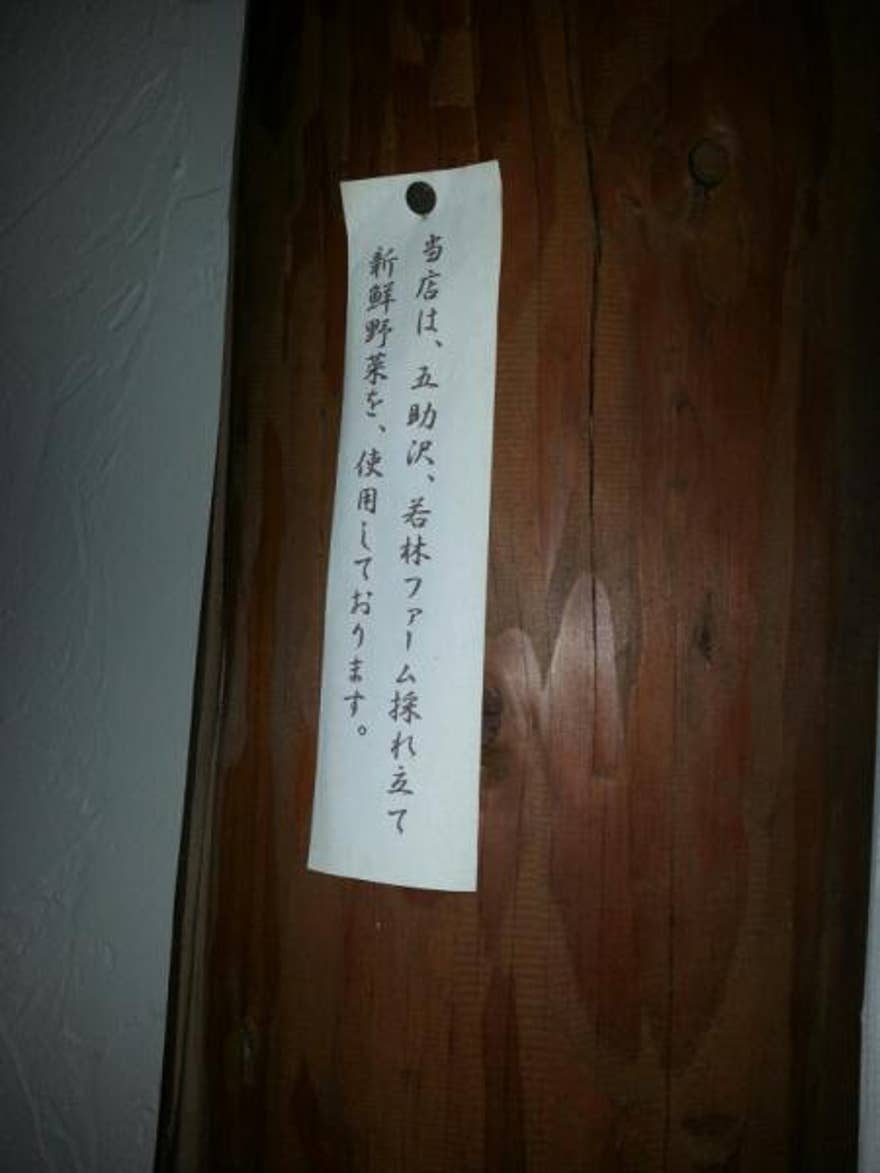 当店は、五助沢、若林ファーム採れ立て
新鮮野菜を、使用しております。